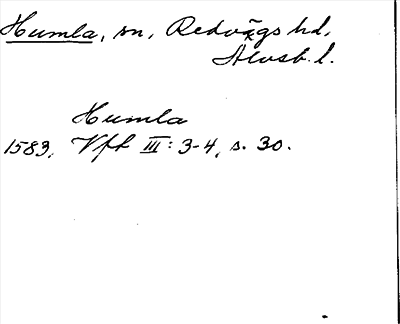 Humla, sn, Redvägs hd,
Älvsb. l.
Humla
1583, Vft III: 3-4, s. 30.